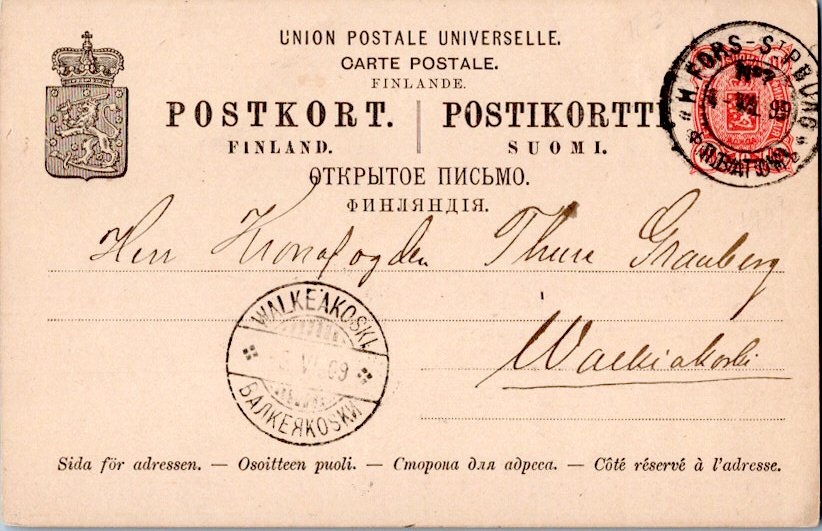 UNION POSTALE UNIVERSELLE.
CARTE POSTALE.
FINLANDE.
POSTKORT. POSTIKORTTI
FINLAND. SUOMI.
ОТКРЫТОЕ ПИСЬМО.
ФИНЛЯНДІЯ.
H:FORS-S:TPBURG
No 2
99
Herr Kronofogden Thure Granberg
WALKEAKOSKI
VI 99
ВАЛКЕЯКОSКИ
Walkiakoski
Sida för adressen. — Osoitteen puoli. — Сторона для адреса. — Côté réservé à l'adresse.